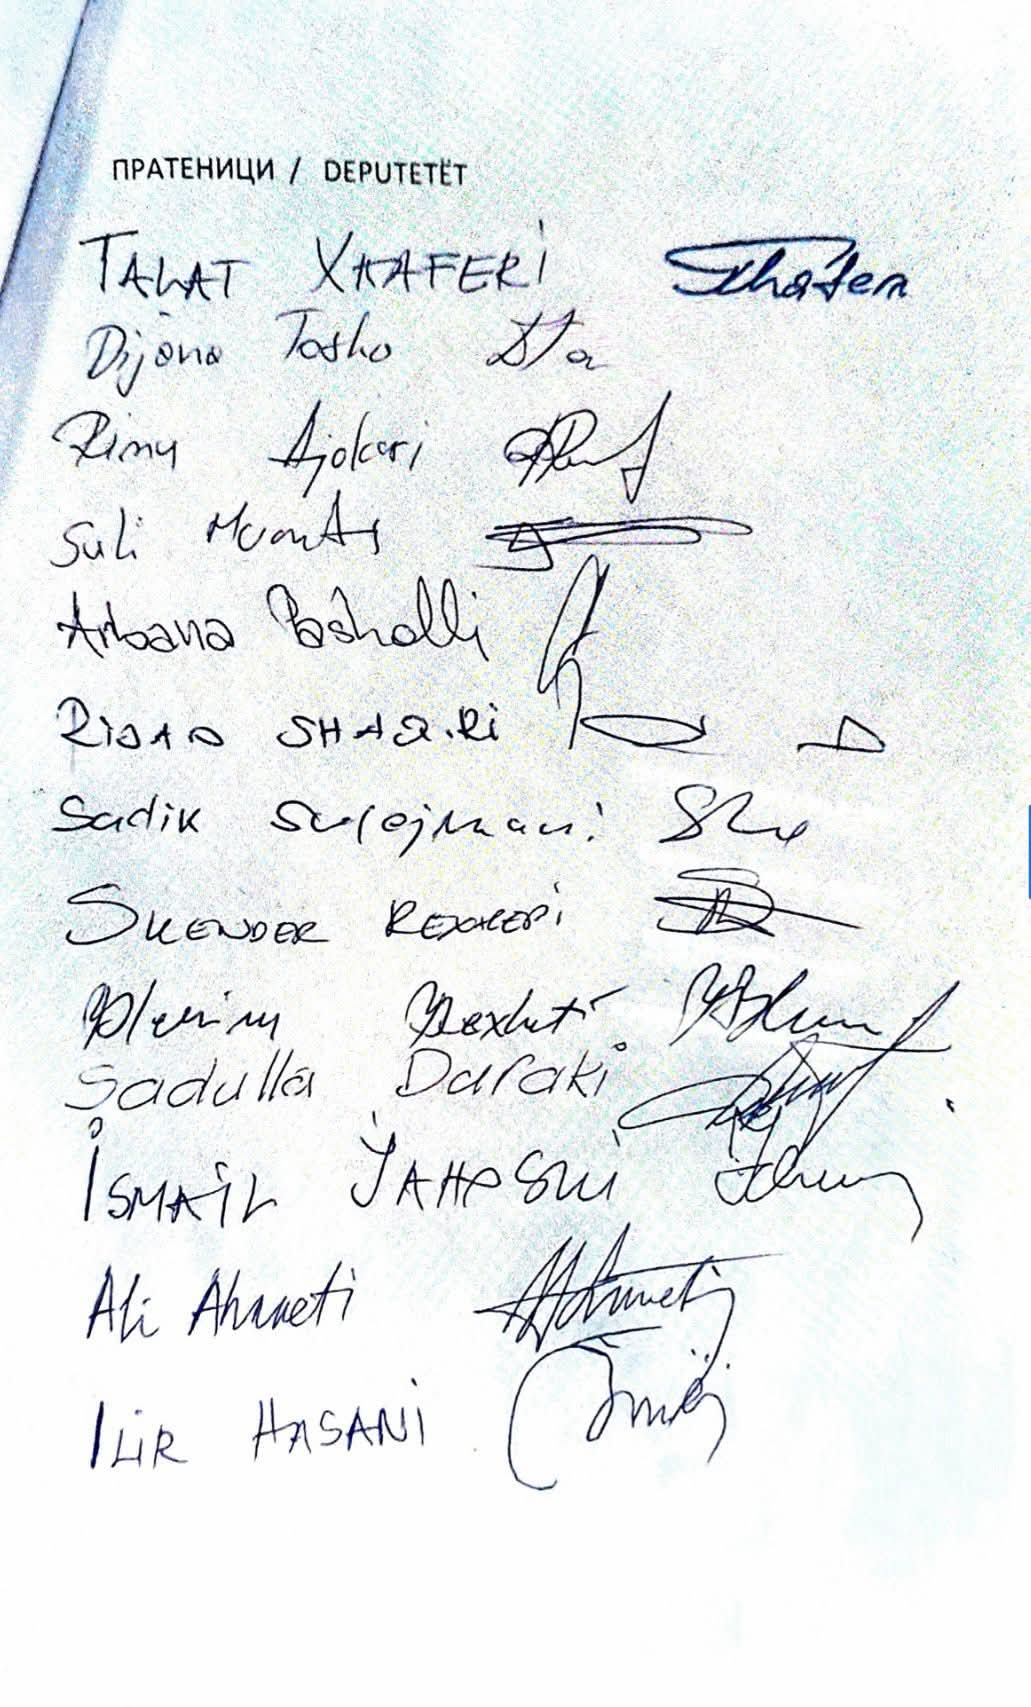 ПРАТЕНИЦИ / DEPUTETËT
TALAT XHAFERI
Dijana Tosko
Ajokari
Suli
Arbana Pasholli
SHAQIRI
Sadik Sulejmani
SKENDER REXHEPI
Blerim Bexheti
Sadulla Duraki
İSMAİL JAHOSKI
Ali Ahmeti
ILIR HASANI